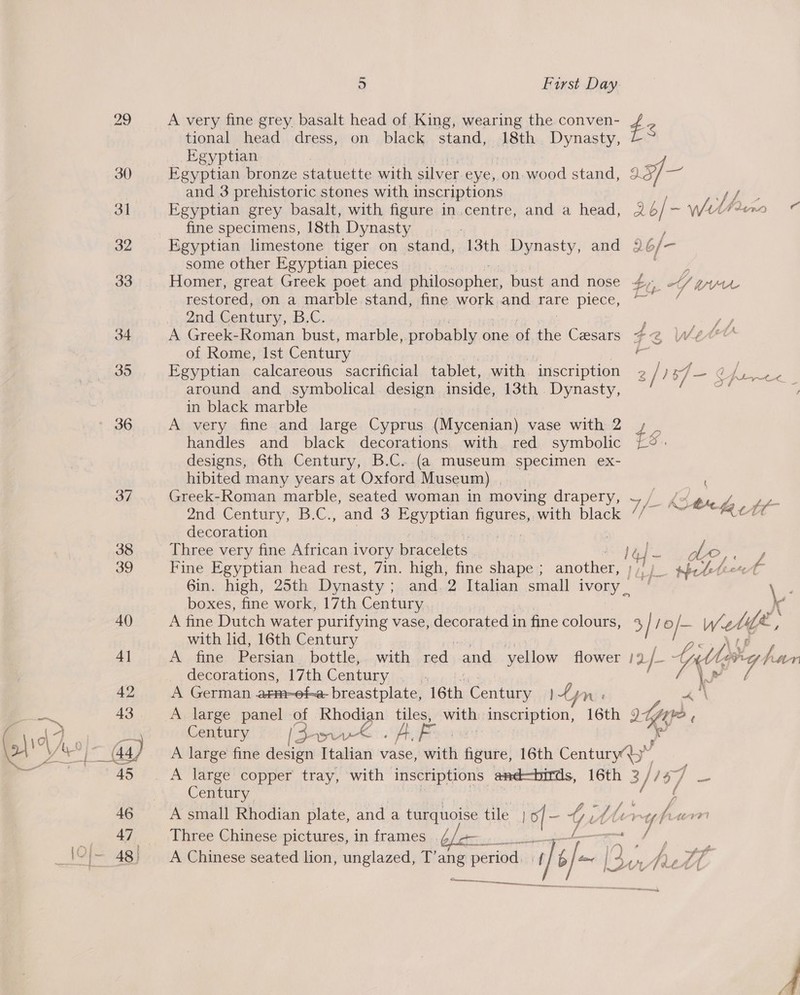 5 First Day
29 A very fine grey basalt head of King, wearing the conven- £3
tional head dress, on black stand, 18th Dynasty,
Egyptian
30 Egyptian bronze statuette with silver eye, on wood stand, 25/-
and 3 prehistoric stones with inscriptions
31 Egyptian grey basalt, with figure in centre, and a head, 26/-
fine specimens, 18th Dynasty
32 Egyptian limestone tiger on stand, 13th Dynasty, and 26/-
some other Egyptian pieces
33 Homer, great Greek poet and philosopher, bust and nose
restored, on a marble stand, fine work and rare piece,
2nd Century, B.C.
34 A Greek-Roman bust, marble, probably one of the Cæsars £2
of Rome, 1st Century
35 Egyptian calcareous sacrificial tablet, with inscription 2/15/-
around and symbolical design inside, 13th Dynasty,
in black marble
36 A very fine and large Cyprus (Mycenian) vase with 2
handles and black decorations with red symbolic £8.
designs, 6th Century, B.C. (a museum specimen ex-
hibited many years at Oxford Museum)
37 Greek-Roman marble, seated woman in moving drapery,
2nd Century, B.C., and 3 Egyptian figures, with black
decoration
38 Three very fine African ivory bracelets do,,
39 Fine Egyptian head rest, 7in. high, fine shape; another,
6in. high, 25th Dynasty; and 2 Italian small ivory
boxes, fine work, 17th Century
40 A fine Dutch water purifying vase, decorated in fine colours, 3/10/-
with lid, 16th Century
41 A fine Persian bottle, with red and yellow flower 12/-
decorations, 17th Century
42 A German arm of a breastplate, 16th Century
43 A large panel of Rhodian tiles, with inscription, 16th
Century
44 A large fine design Italian vase, with figure, 16th Century
45 A large copper tray, with inscriptions and birds, 16th 3/15/-
Century
46 A small Rhodian plate, and a turquoise tile 10/-
47 Three Chinese pictures, in frames
10/- 48 A Chinese seated lion, unglazed, T'ang period.